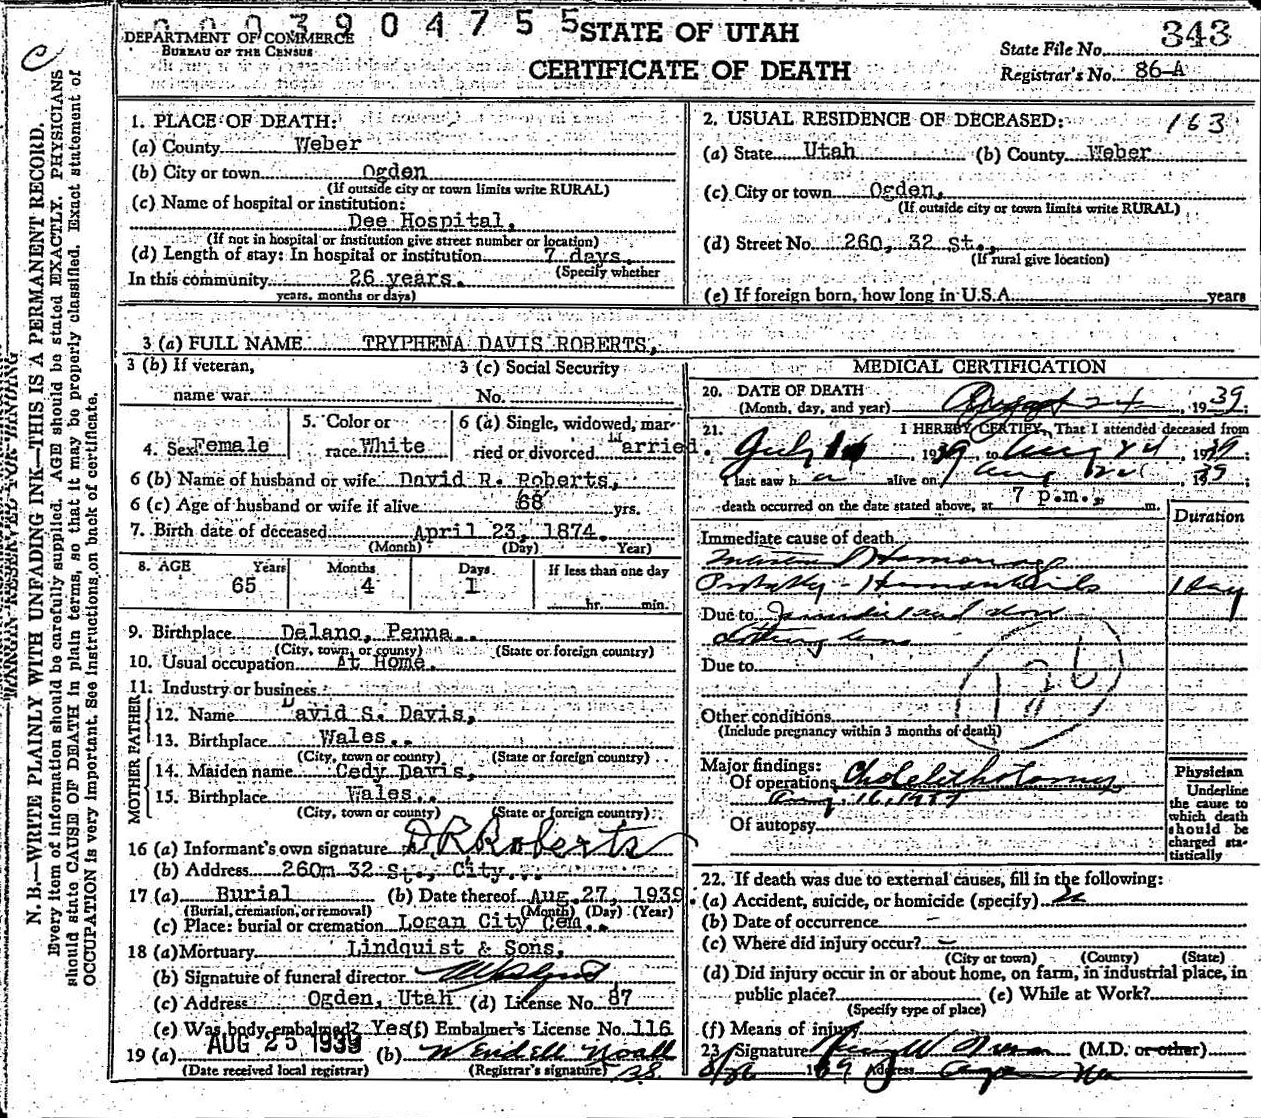 0003904755
STATE OF UTAH
CERTIFICATE OF DEATH
DEPARTMENT OF COMMERCE
BUREAU OF THE CENSUS
State File No. 343
Registrar's No. 86-A
C
MARGIN RESERVED FOR BINDING
N. B.—WRITE PLAINLY WITH UNFADING INK—THIS IS A PERMANENT RECORD.
Every item of information should be carefully supplied. AGE should be stated EXACTLY. PHYSICIANS
should state CAUSE OF DEATH in plain terms, so that it may be properly classified. Exact statement of
OCCUPATION is very important. See instructions on back of certificate.
1. PLACE OF DEATH:
(a) County Weber
(b) City or town Ogden
(If outside city or town limits write RURAL)
(c) Name of hospital or institution:
Dee Hospital,
(If not in hospital or institution give street number or location)
(d) Length of stay: In hospital or institution 7 days.
(Specify whether
In this community 26 years.
years, months or days)
2. USUAL RESIDENCE OF DECEASED: 163
(a) State Utah (b) County Weber
(c) City or town Ogden,
(If outside city or town limits write RURAL)
(d) Street No. 260, 32 St.,
(If rural give location)
(e) If foreign born, how long in U.S.A. years
3 (a) FULL NAME TRYPHENA DAVIS ROBERTS,
3 (b) If veteran,
name war
3 (c) Social Security
No.
4. Sex Female
5. Color or
race White
6 (a) Single, widowed, mar-
ried or divorced Married.
6 (b) Name of husband or wife David R. Roberts,
6 (c) Age of husband or wife if alive 68 yrs.
7. Birth date of deceased April 23, 1874.
(Month) (Day) Year)
8. AGE Years Months Days If less than one day
65 4 1 hr. min.
9. Birthplace Delano, Penna.
(City, town, or county) (State or foreign country)
10. Usual occupation At Home.
11. Industry or business
FATHER
12. Name David S. Davis,
13. Birthplace Wales.
(City, town or county) (State or foreign country)
MOTHER
14. Maiden name Cedy Davis,
15. Birthplace Wales.
(City, town or county) (State or foreign country)
16 (a) Informant's own signature D R Roberts
(b) Address 260 32 St., City.
17 (a) Burial (b) Date thereof Aug. 27, 1939.
(Burial, cremation, or removal) (Month) (Day) (Year)
(c) Place: burial or cremation Logan City Cem.
18 (a) Mortuary Lindquist & Sons,
(b) Signature of funeral director
(c) Address Ogden, Utah (d) License No. 87
(e) Was body embalmed? Yes (f) Embalmer's License No. 116
19 (a) AUG 25 1939 (b) Wendell Noall
(Date received local registrar) (Registrar's signature)
MEDICAL CERTIFICATION
20. DATE OF DEATH
(Month, day, and year) August 24, 1939;
21. I HEREBY CERTIFY, That I attended deceased from
July 1939, to Aug 24 1939
I last saw h alive on Aug 1939;
death occurred on the date stated above, at 7 p.m., m.
Duration
Immediate cause of death
Probably - 1 Day
Due to and slow
clotting time
Due to
Other conditions
(Include pregnancy within 3 months of death)
Major findings:
Of operations Cholelithotomy
Aug. 16, 1939
Of autopsy
Physician
Underline
the cause to
which death
should be
charged sta-
tistically
22. If death was due to external causes, fill in the following:
(a) Accident, suicide, or homicide (specify)
(b) Date of occurrence –
(c) Where did injury occur? –
(City or town) (County) (State)
(d) Did injury occur in or about home, on farm, in industrial place, in
public place? (e) While at Work?
(Specify type of place)
(f) Means of injury
23 Signature (M.D. or other)
Address